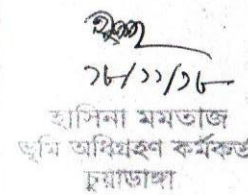 ১৮/১১/১৮
হাসিনা মমতাজ
ভূমি অধিগ্রহণ কর্মকর্ত
চুয়াডাঙ্গা